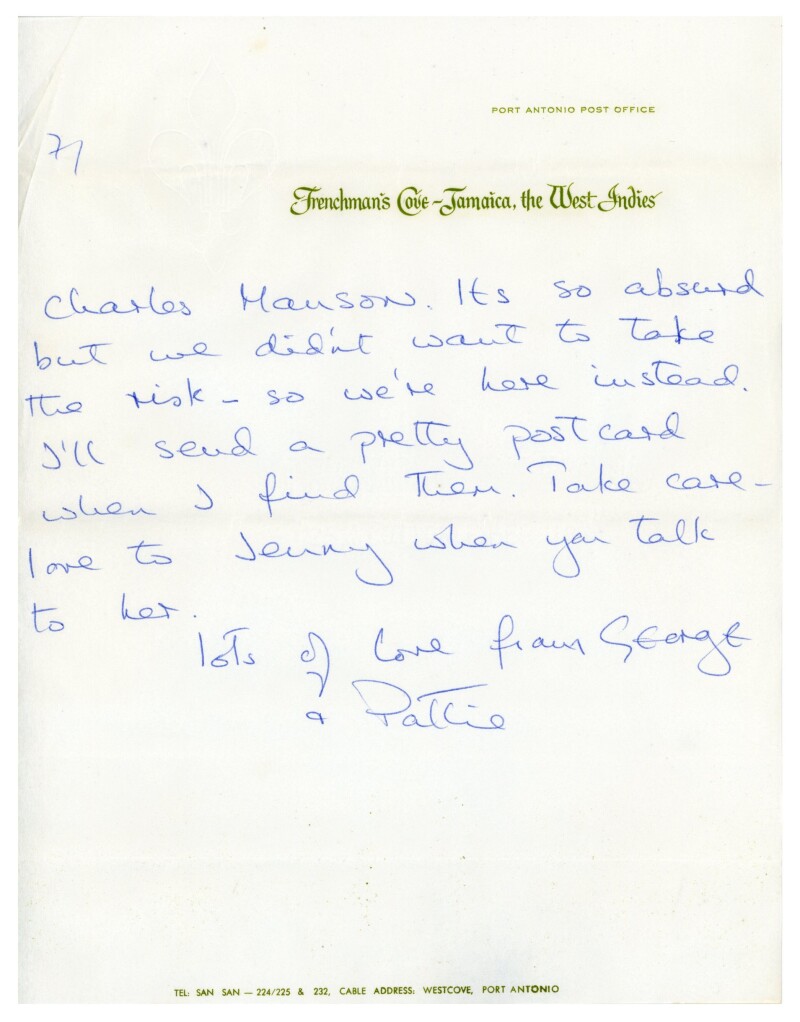 PORT ANTONIO POST OFFICE
7/
Frenchman's Cove - Jamaica, the West Indies
Charles Manson. Its so absurd
but we didn't want to take
the risk - so we're here instead.
I'll send a pretty postcard
when I find them. Take care -
love to Jenny when you talk
to her.
lots of love from George
& Pattie
TEL: SAN SAN — 224/225 & 232, CABLE ADDRESS: WESTCOVE, PORT ANTONIO